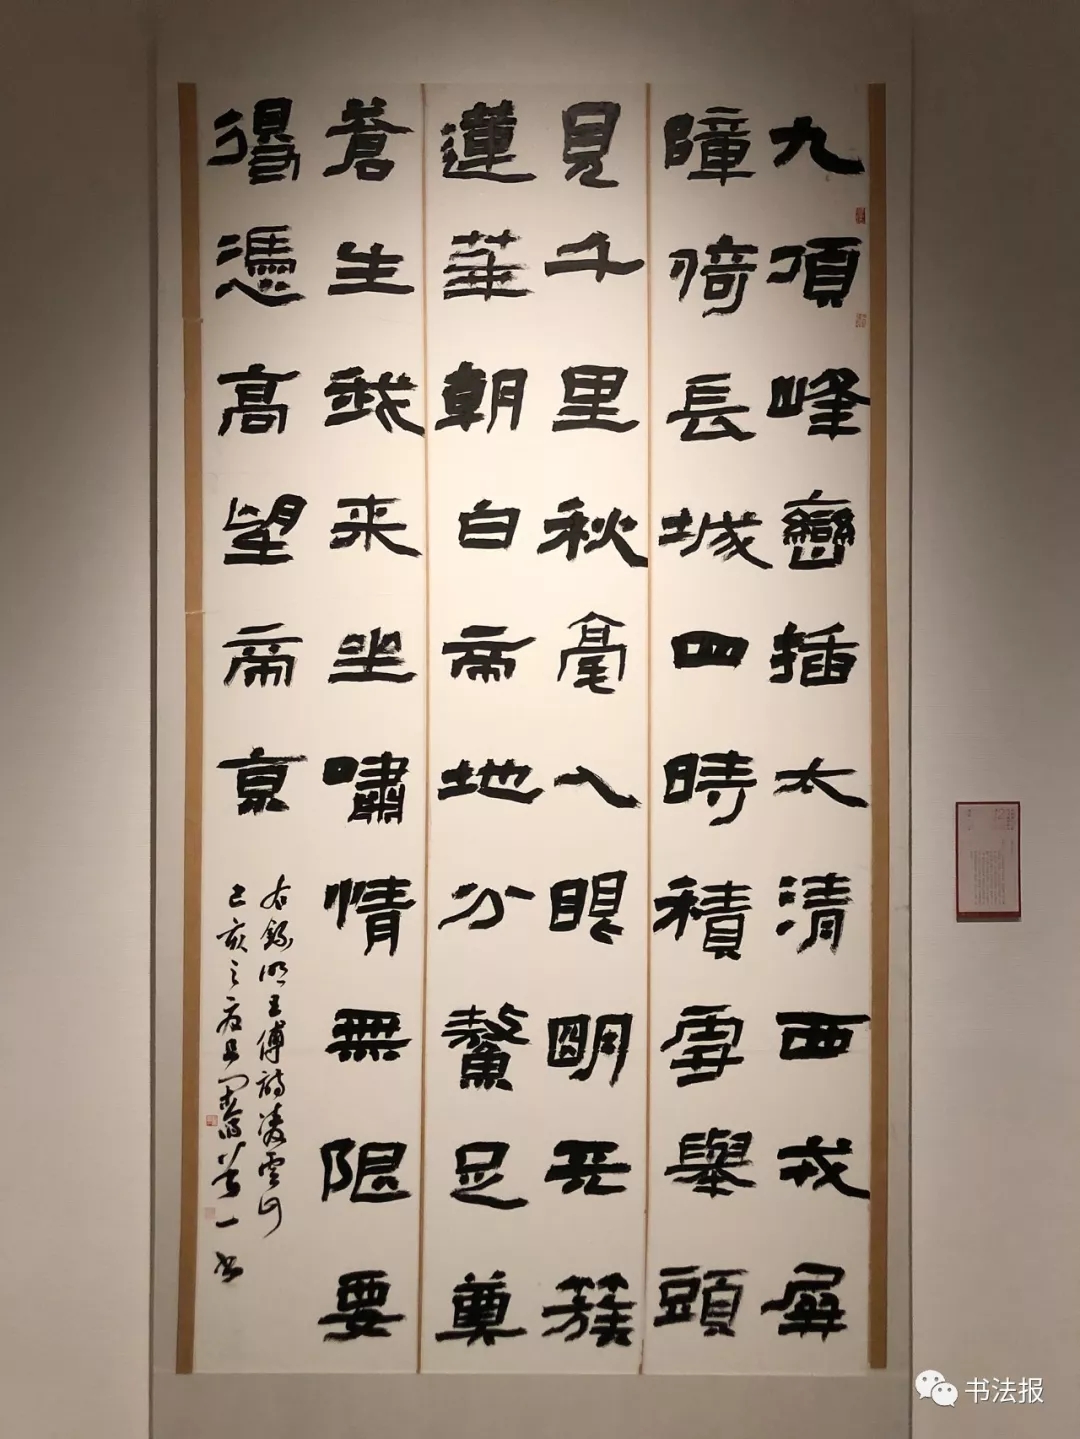 九頂峰巒插太清西戎屏
障倚長城四時積雪舉頭
見千里秋毫入眼明五簇
蓮華朝白帝地分鰲足奠
蒼生我來坐嘯情無限要
得憑高望帝京
右録明王傅詩凌雲山
己亥之
一書
书法报